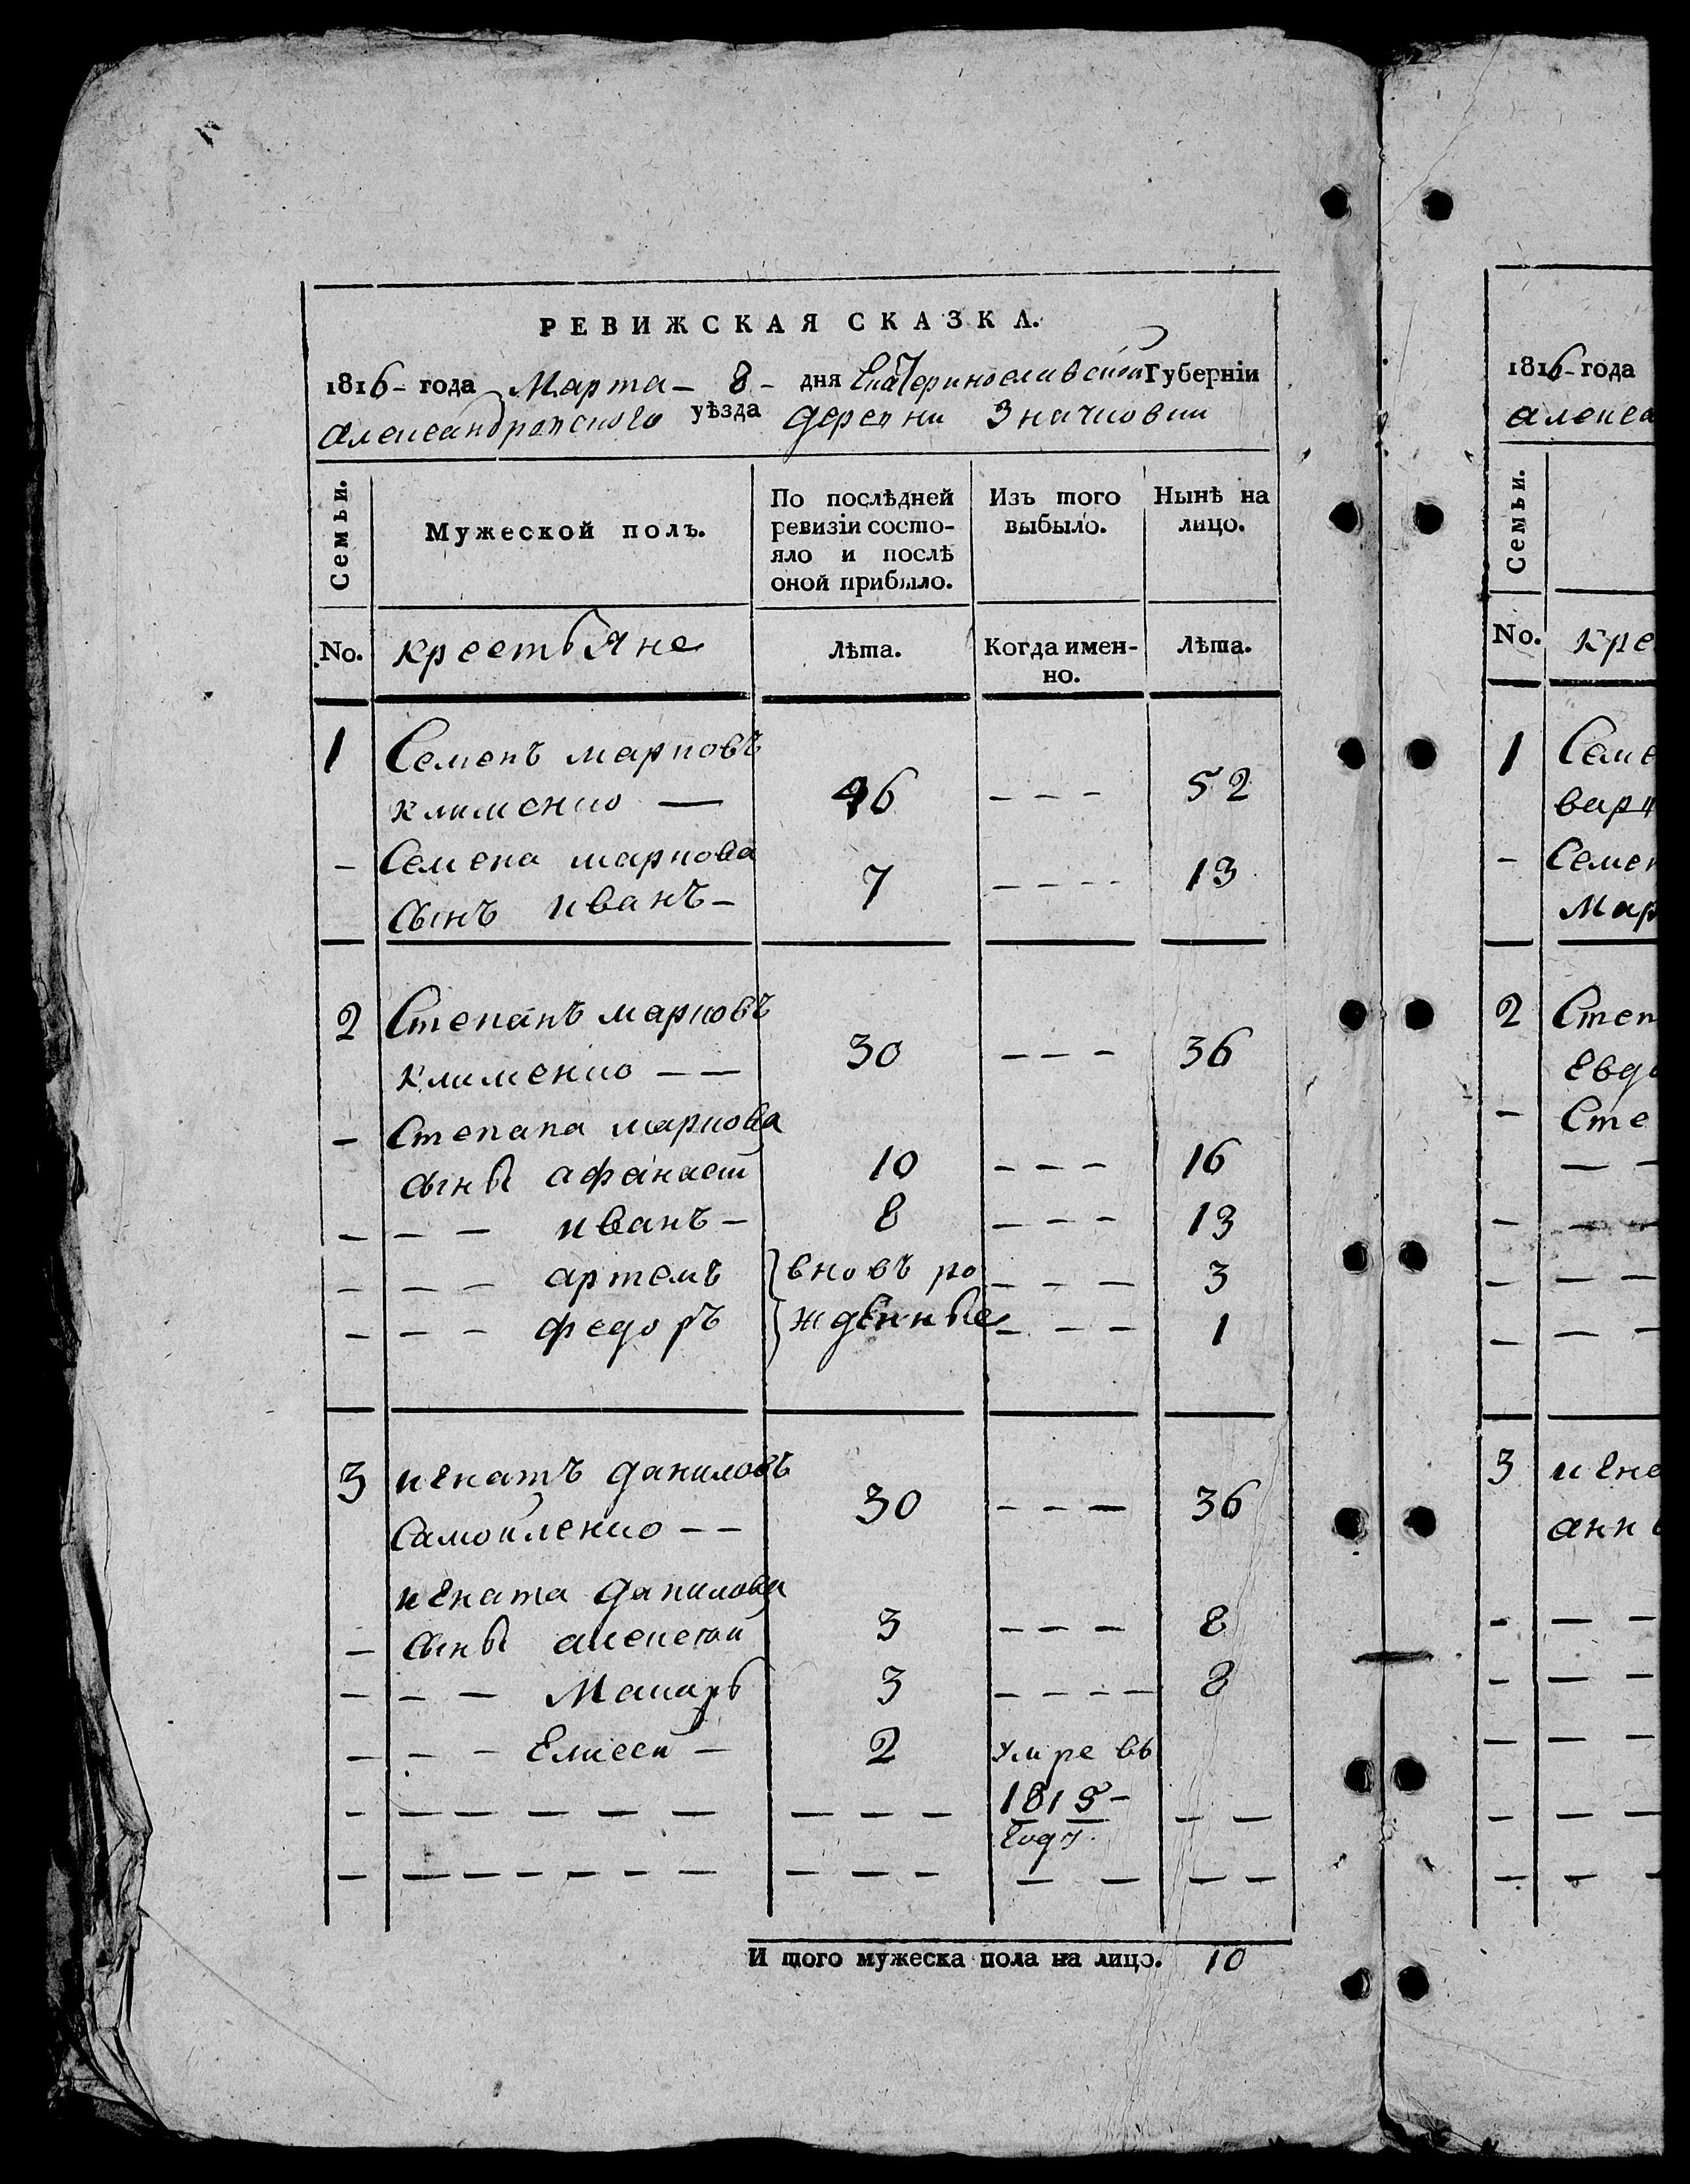 РЕВИЖСКАЯ СКАЗКА.
1816 - года Марта - 8 - дня Екатеринославской Губерніи
Александровского уѣзда деревни Значковки
Семьи.
Мужеской полъ.
По послѣдней ревизіи состояло и послѣ оной прибыло.
Изъ того выбыло.
Нынѣ на лицо.
No. крестьяне Лѣта. Когда именно. Лѣта.
1 Семенъ марковъ
клименко — 46 - - - 52
- Семена маркова
сынъ иванъ - 7 - - - - 13
2 Степанъ марковъ
клименко — — 30 - - - 36
- Степана маркова
сыны афанасй 10 - - - 16
- - - иванъ - 8 - - - 13
- - - артемъ вновъ ро - - - 3
- - - федоръ жденные - - - 1
3 игнатъ даниловъ
Самойленко - - 30 - - - 36
игната данилова
- сыны алексей 3 - - - 8
- - - Макаръ 3 - - - - 8
- - - Елисей - 2 умре въ
1815 -
году.
И того мужеска пола на лицо. 10
1816 - года
алекса
Семьи.
No. кре
1 Семе
варч
- Семен
Мар
2 Степ
Евдо
- Сте
3 игна
анн